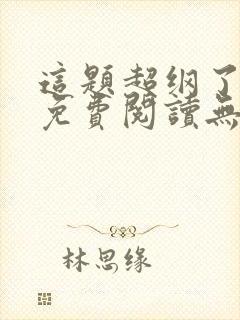 這題超纲了
免費閱讀無
林思缘